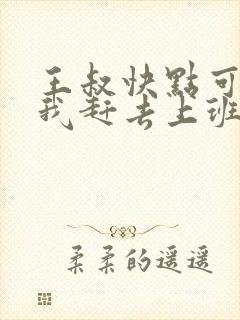 王叔快點可
我赶去上班
柔柔的遥遥